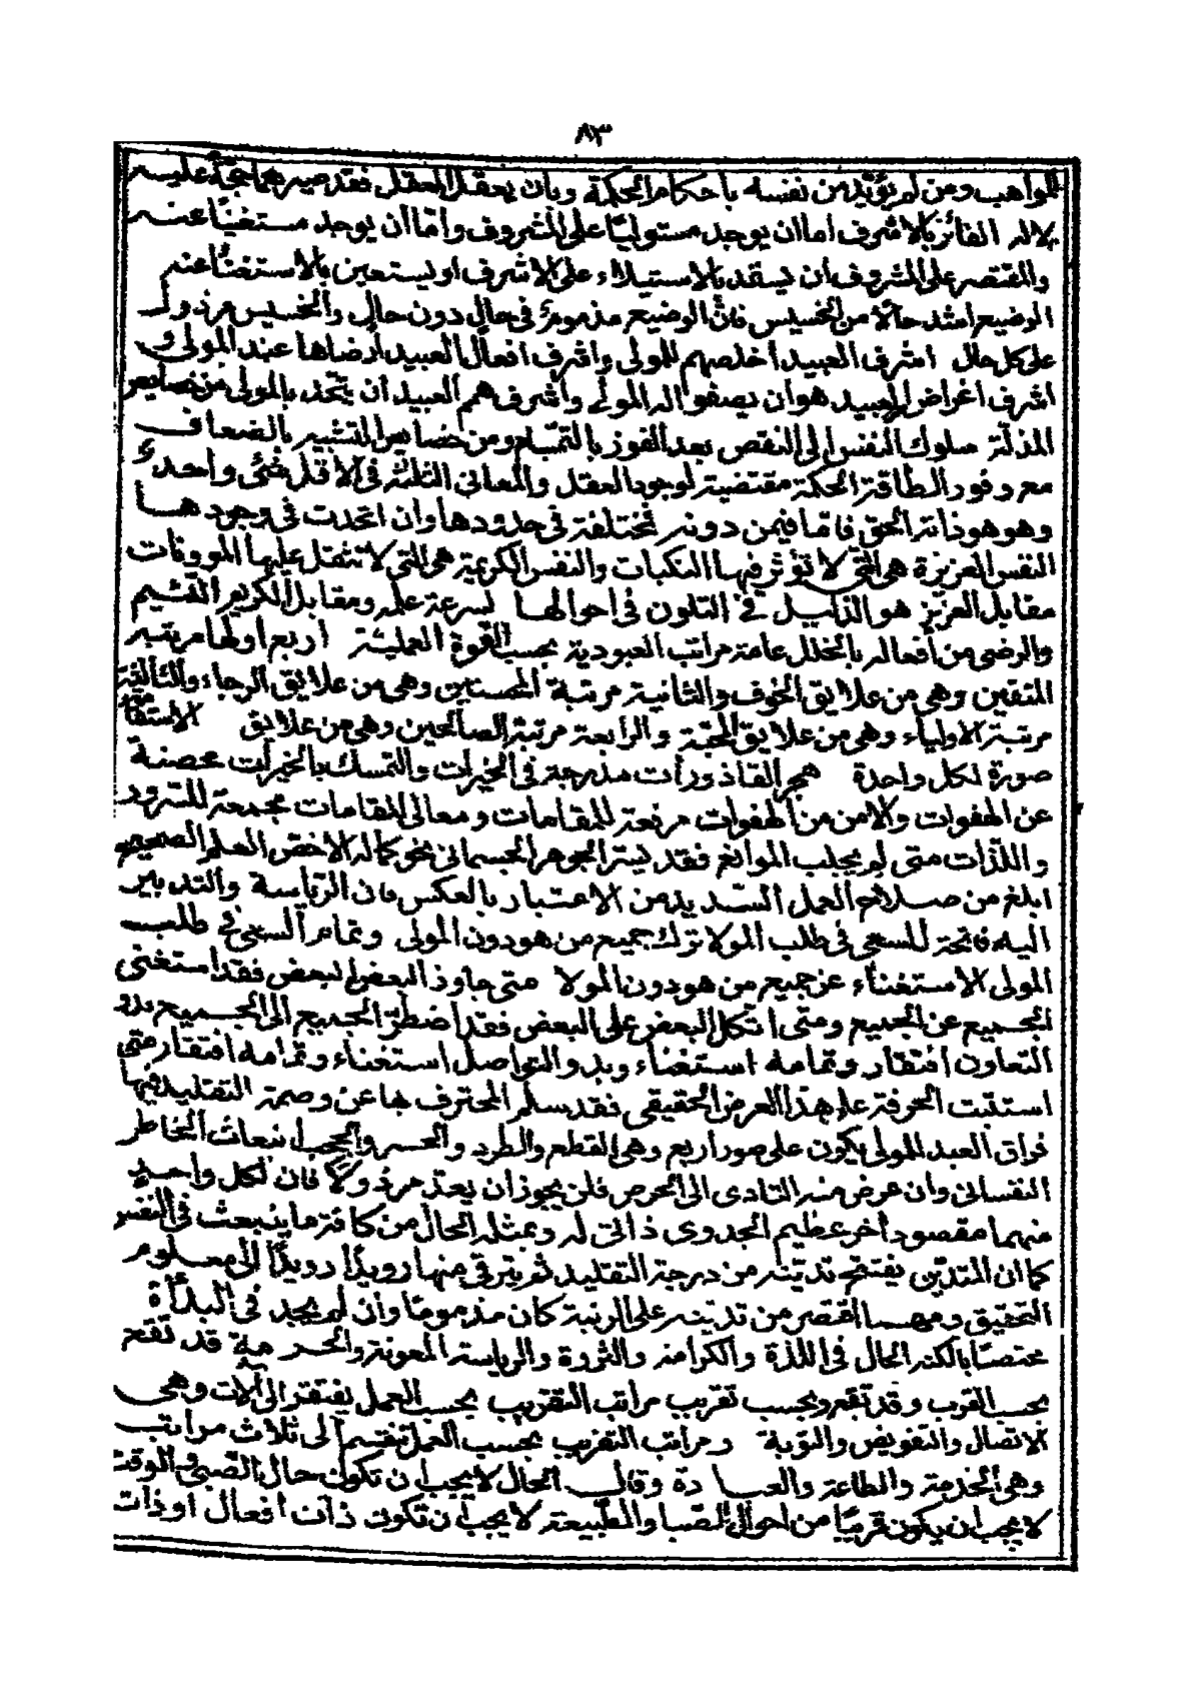 ٨٣
المواهب ومن لم يؤيد من نفسه باحكام الحكمة وبان يعقل العقل فقد صير حجة عليه
لاله الفائز بالاشرف اما ان يوجد مستوليًا على المشروف واما ان يوجد مستغنيًا عنه
والمقتصر على المشروف ان يسقد بالاستيلاء على الاشرف او يستعين بالاستغناء عنه
الوضيع اشد حالا من الخسيس فان الوضيع مذموم في حال دون حال والخسيس مرذول
على كل حال اشرف العبيد اخلصهم للمولى واشرف افعال العبيد ارضاها عند المولى و
اشرف اغراض العبيد هو ان يصفو اله المولى واشرف همم العبيد أن يتحد بالمولى من خصايص
المذلة سلوك النفس الى النقص بعد الفوز بالتمام ومن خصايص التشبيه بالضعاف
مع وفور الطاقة الحكمة مقتضية لوجود العقل والمعانى الثلثة في الاقل شئ واحد
وهو هو ذاته الحق فاما فيمن دونه مختلفة في حدودها وان اتحدت في وجودها
النفس العزيزة هي التي لا تؤثر فيها النكبات والنفس الكريمة هي التي لا تثقل عليها المؤونات
مقابل العزيز هو الذليل في التلون في احوالها لسرعة ومقابل الكريم اللئيم
والرضى من أفعاله بالخلل عامة مراتب العبودية بحسب القوة العملية اربع اولها مرتبة
المتقين وهى من علايق الخوف والثانية مرتبة المحسنين وهى من علايق الرجاء والثالثة
مرتبة الاولياء وهى من علايق المحبة والرابعة مرتبة الصالحين وهى من علايق الاستقامة
صورة لكل واحدة هجر القاذورات مدرجة في الخيرات والتمسك بالخيرات محصنة
عن الهفوات والامن من الهفوات مرفعة للمقامات ومعالى المقامات مجمعة للسرور
واللذات متى لم يجلب الموانع فقد يسر الجوهر الجسمانى نحو كماله الاخص العلم الصحيح
ابلغ من صلاح العمل السديد من الاعتبار بالعكس فان الرياسة والتدبير
اليه فاتحة للسعى في طلب المولا ترك جميع من هو دون المولى وتمام السعى في طلب
المولى الاستغناء عن جميع من هو دون المولا متى جاوز البعض البعض فقد استغنى
الجميع عن الجميع ومتى اتكل البعض على البعض فقد اضطر الجميع الى الجميع بدو
التعاون افتقار وتمامه استغناء وبدو التواصل استغناء وتمامه افتقار متى
استتبت الحرفة على هذا العرض الحقيقى فقد سلم المحترف بها عن وصمة التقليد فيها
فراق العبد المولى يكون على صور أربع وهى القطع والطرد والخسر والحجب انبعاث الخاطر
النفسانى وان عرض منه التادى الى الحرص فلن يجوز ان يعد مرذولًا فان لكل واحد
منهما مقصود اخر عظيم الجدوى ذاتى له وبمثله الحال من كافة ما ينبعث في النفس
كما ان المتدين يفتتح تدينه من درجة التقليد ثم يترقى منها رويدًا رويدًا الى معلوم
التحقيق ومهما اقتصر من تدينه على الرتبة كان مذمومًا وان لم يجد في البدأة
مختصًا بالكنه الحال في اللذة والكرامة والثروة والرياسة المعونة والخدمة قد تقع
بحسب القرب وقد تقع وبحسب تقريب مراتب التقريب بحسب العمل يفتقر الى آلات وهى
الاتصال والتفويض والتوبة ومراتب التقريب بحسب العمل تنقسم الى ثلاث مراتب
وهى الخدمة والطاعة والعبادة وقالب الحال لا يجب ان تكون حال الصبى والوقت
لا يجب ان يكون قريبًا من احوال الصبا والطبيعة لا يجب ان تكون ذات افعال او ذات